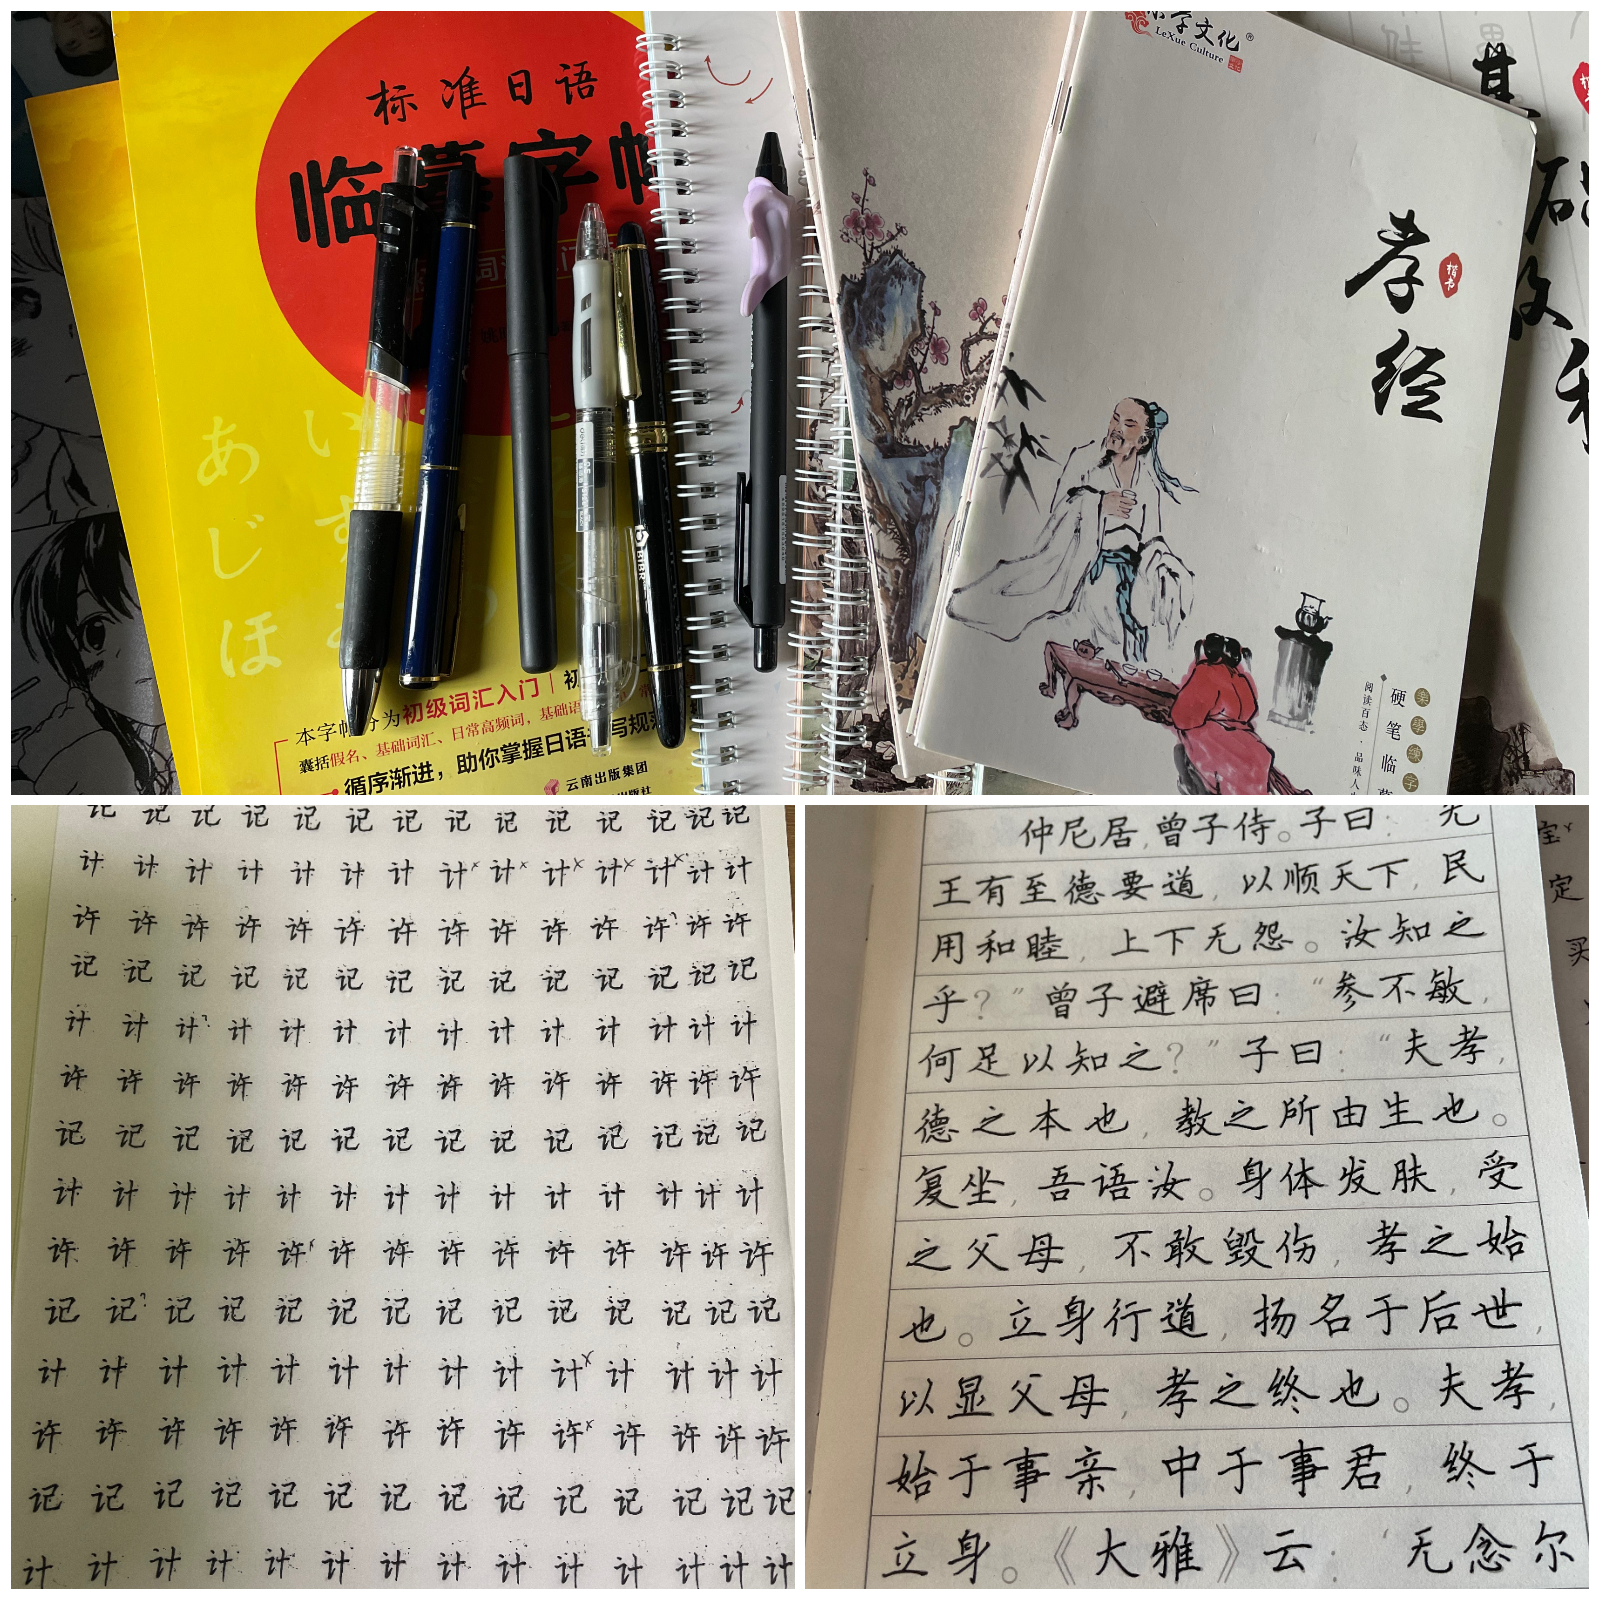 标准日语
临摹字帖
あ い
じ す
ほ
本字帖分为初级词汇入门
囊括假名、基础词汇、日常高频词，基础语
循序渐进，助你掌握日语书写规范
云南出版集团
乐学文化®
LeXue Culture
孝经
楷书
硬笔临摹
阅读百态·品味人生
基础教程
记 记 记 记 记 记 记 记 记 记 记 记 记 记
计 计 计 计 计 计 计 计 计 计 计 计 计 计
许 许 许 许 许 许 许 许 许 许 许 许 许 许
记 记 记 记 记 记 记 记 记 记 记 记 记 记
计 计 计 计 计 计 计 计 计 计 计 计 计 计
许 许 许 许 许 许 许 许 许 许 许 许 许 许
记 记 记 记 记 记 记 记 记 记 记 记 记 记
计 计 计 计 计 计 计 计 计 计 计 计 计 计
许 许 许 许 许 许 许 许 许 许 许 许 许 许
记 记 记 记 记 记 记 记 记 记 记 记 记 记
计 计 计 计 计 计 计 计 计 计 计 计 计 计
许 许 许 许 许 许 许 许 许 许 许 许 许 许
记 记 记 记 记 记 记 记 记 记 记 记 记 记
计 计 计 计 计 计 计 计 计 计 计 计 计 计
仲尼居,曾子侍。子曰：“先
王有至德要道,以顺天下,民
用和睦,上下无怨。汝知之
乎？”曾子避席曰：“参不敏,
何足以知之？”子曰：“夫孝,
德之本也,教之所由生也。
复坐,吾语汝。身体发肤,受
之父母,不敢毁伤,孝之始
也。立身行道,扬名于后世,
以显父母,孝之终也。夫孝,
始于事亲,中于事君,终于
立身。《大雅》云：‘无念尔
定
买